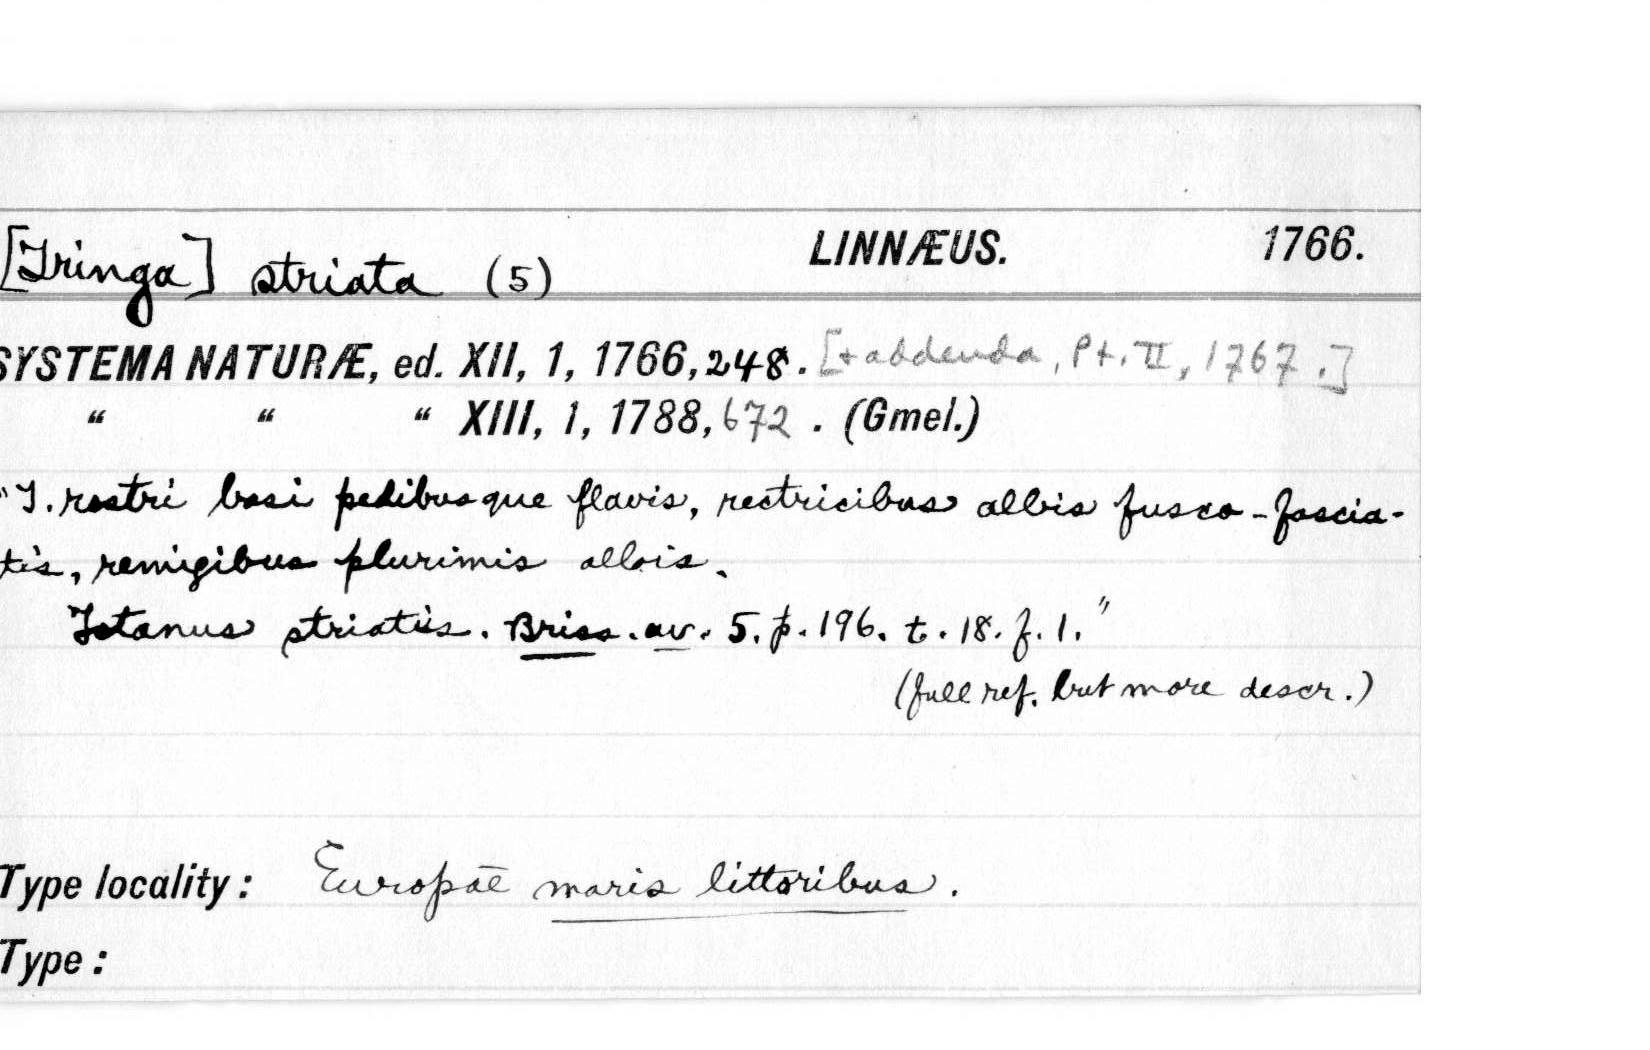 [Tringa] striata (5) LINNÆUS. 1766.
SYSTEMA NATURÆ, ed. XII, 1, 1766, 248. [+ addenda, Pt. II, 1767.]
“ “ “ XIII, 1, 1788, 672. (Gmel.)
"T. rostri basi pedibusque flavis, rectricibus albis fusco-fascia-
tis, remigibus plurimis albis.
Totanus striatus. Briss. av. 5. p. 196. t. 18. f. 1."
(full ref. but more descr.)
Type locality: Europae maris littoribus.
Type: